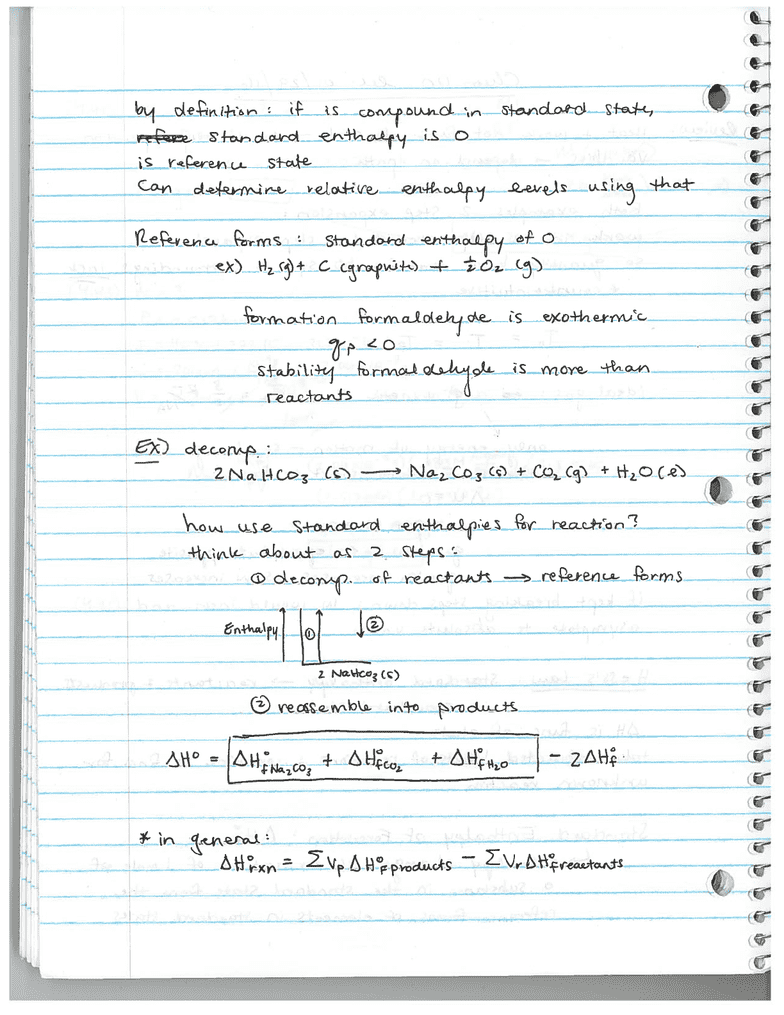 by definition : if is compound in standard state,
standard enthalpy is 0
is reference state
Can determine relative enthalpy levels using that
Reference forms : standard enthalpy of 0
ex) H₂ (g) + C (graphite) + ½O₂ (g)
formation formaldehyde is exothermic
qp < 0
stability formaldehyde is more than
reactants
Ex) decomp.:
2NaHCO₃ (s) ⟶ Na₂CO₃ (s) + CO₂ (g) + H₂O (l)
how use standard enthalpies for reaction?
think about as 2 steps:
① decomp. of reactants → reference forms
Enthalpy ① ②
2 NaHCO₃ (s)
② reassemble into products
ΔH° = ΔH°f Na₂CO₃ + ΔH°f CO₂ + ΔH°f H₂O − 2ΔH°f
* in general:
ΔH°rxn = ΣVp ΔH°f products − ΣVr ΔH°f reactants